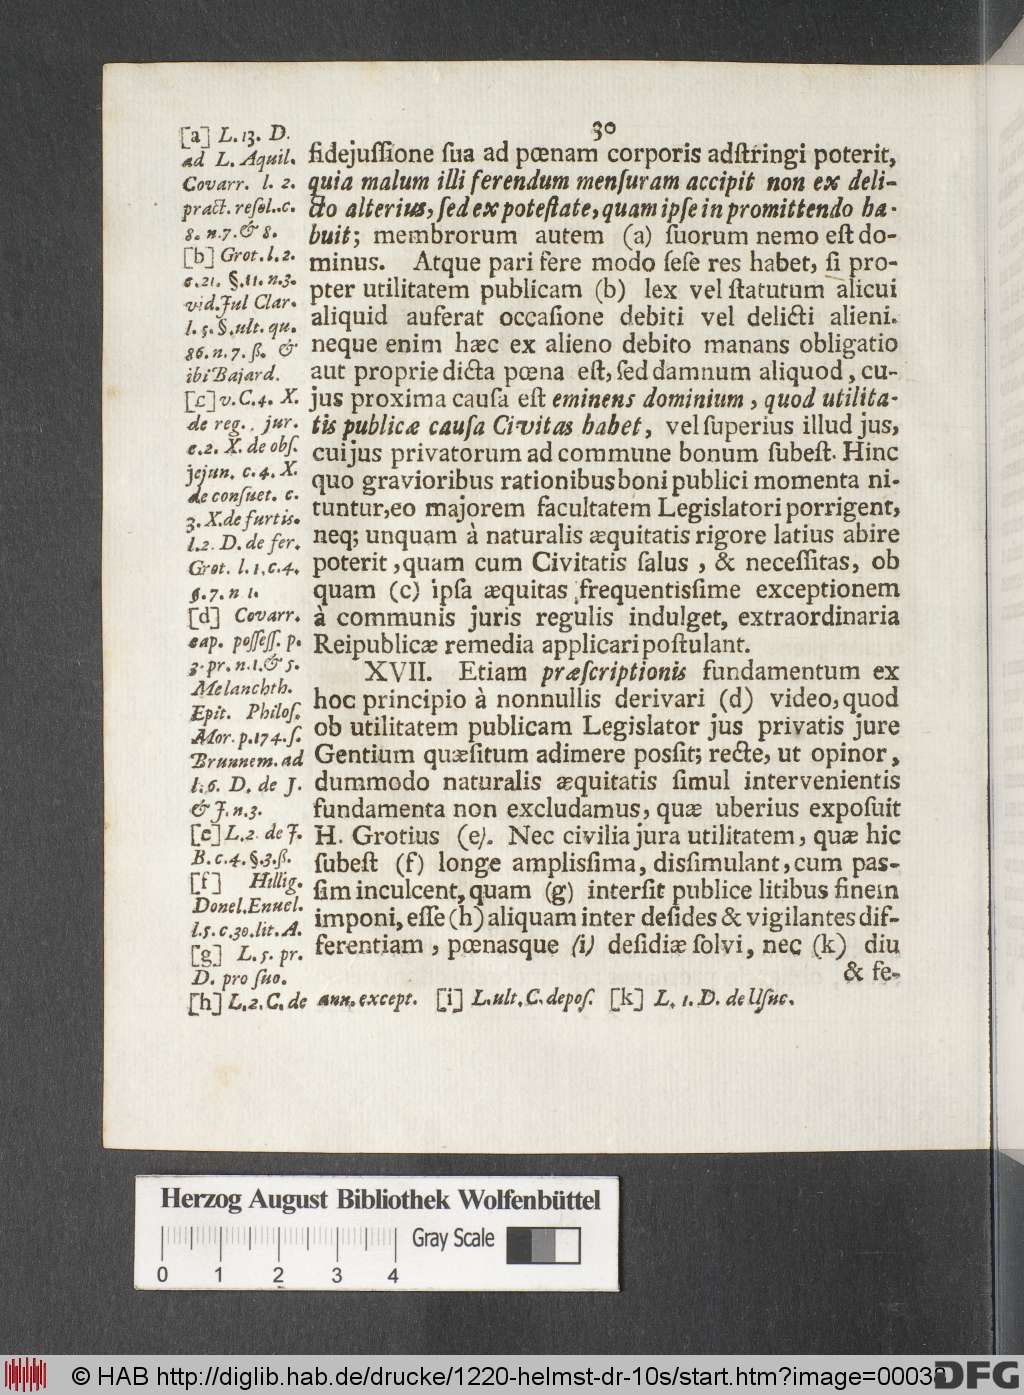 30
[a] L. 13. D.
ad L. Aquil.
Covarr. l. 2.
pract. reſol. c.
8. n. 7. & 8.
[b] Grot. l. 2.
c. 21. §. 11. n. 3.
vid. Jul Clar.
l. 5. §. ult. qu.
86. n. 7. ß. &
ibi Bajard.
[c] v. C. 4. X.
de reg. jur.
c. 2. X. de obſ.
jejun. c. 4. X.
de conſuet. c.
3. X. de furtis.
l. 2. D. de fer.
Grot. l. 1. c. 4.
§. 7. n 1.
[d] Covarr.
cap. poſſeſſ. p.
3. pr. n. 1. & 5.
Melanchth.
Epit. Philoſ.
Mor. p. 174. ſ.
Brunnem. ad
l. 6. D. de J.
& J. n. 3.
[e] L. 2. de J.
B. c. 4. §. 3. ß.
[f] Hillig.
Donel. Enucl.
l. 5. c. 30. lit. A.
[g] L. 5. pr.
D. pro ſuo.
fidejuſſione ſua ad pœnam corporis adſtringi poterit,
quia malum illi ferendum menſuram accipit non ex deli-
cto alterius, ſed ex poteſtate, quam ipſe in promittendo ha-
buit; membrorum autem (a) ſuorum nemo eſt do-
minus. Atque pari fere modo ſeſe res habet, ſi pro-
pter utilitatem publicam (b) lex vel ſtatutum alicui
aliquid auferat occaſione debiti vel delicti alieni.
neque enim hæc ex alieno debito manans obligatio
aut proprie dicta pœna eſt, ſed damnum aliquod, cu-
jus proxima cauſa eſt eminens dominium, quod utilita-
tis publicæ cauſa Civitas habet, vel ſuperius illud jus,
cuijus privatorum ad commune bonum ſubeſt. Hinc
quo gravioribus rationibus boni publici momenta ni-
tuntur, eo majorem facultatem Legislatori porrigent,
neq; unquam à naturalis æquitatis rigore latius abire
poterit, quam cum Civitatis ſalus, & neceſſitas, ob
quam (c) ipſa æquitas frequentisſime exceptionem
à communis juris regulis indulget, extraordinaria
Reipublicæ remedia applicari poſtulant.
XVII. Etiam præſcriptionis fundamentum ex
hoc principio à nonnullis derivari (d) video, quod
ob utilitatem publicam Legislator jus privatis jure
Gentium quæſitum adimere posſit; recte, ut opinor,
dummodo naturalis æquitatis ſimul intervenientis
fundamenta non excludamus, quæ uberius expoſuit
H. Grotius (e). Nec civilia jura utilitatem, quæ hic
ſubeſt (f) longe amplisſima, disſimulant, cum pas-
ſim inculcent, quam (g) interſit publice litibus finem
imponi, eſſe (h) aliquam inter deſides & vigilantes dif-
ferentiam, pœnasque (i) deſidiæ ſolvi, nec (k) diu
& fe-
[h] L. 2. C. de ann. except. [i] L. ult. C. depoſ. [k] L. 1. D. de Uſuc.
Herzog August Bibliothek Wolfenbüttel
Gray Scale
0 1 2 3 4
© HAB http://diglib.hab.de/drucke/1220-helmst-dr-10s/start.htm?image=00038
DFG